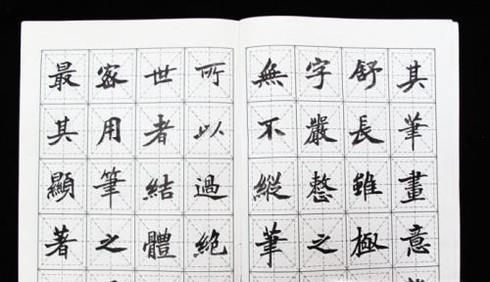 其筆畫意
舒長雖極
字嚴整之
無不縱筆
所以過絕
世者結體
密用筆之
最其顯著